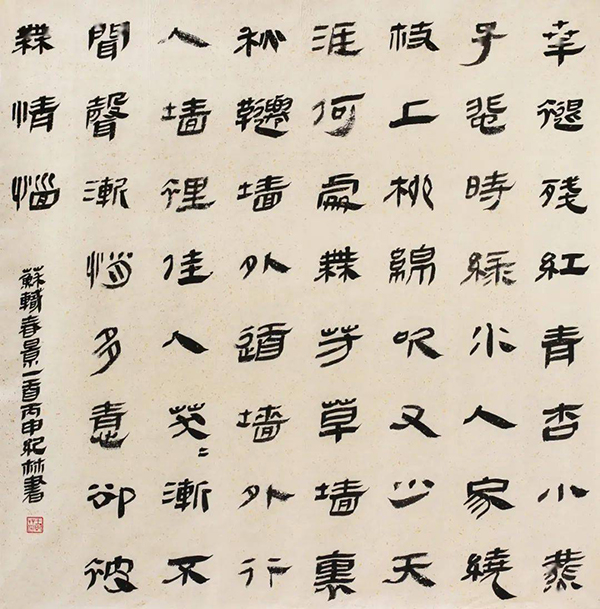 華褪殘紅青杏小燕
子飛時綠水人家繞
枝上柳綿吹又少天
涯何處無芳草墙裏
秋韆墙外道墙外行
人墙裡佳人笑〻漸不
聞聲漸悄多意卻被
無情惱
蘇軾春景一首丙申紀林書